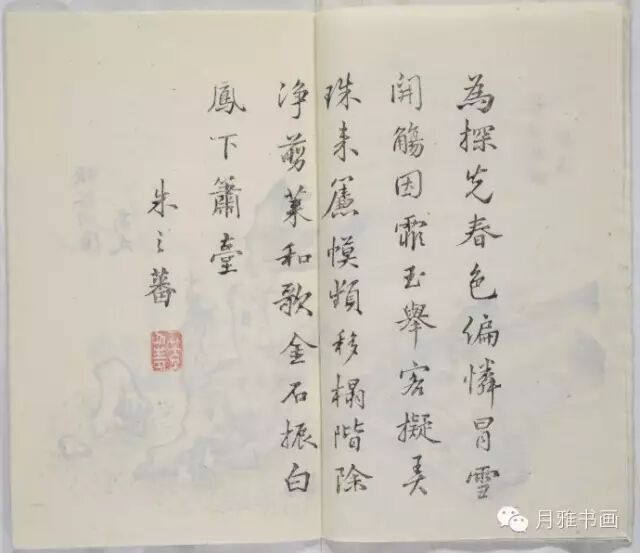 為探先春色偏憐冒雪
開觴因霏玉舉客擬弄
珠来簾幙頻移榻階除
净剪莱和歌金石振白
鳳下簫臺
朱之蕃
月雅书画